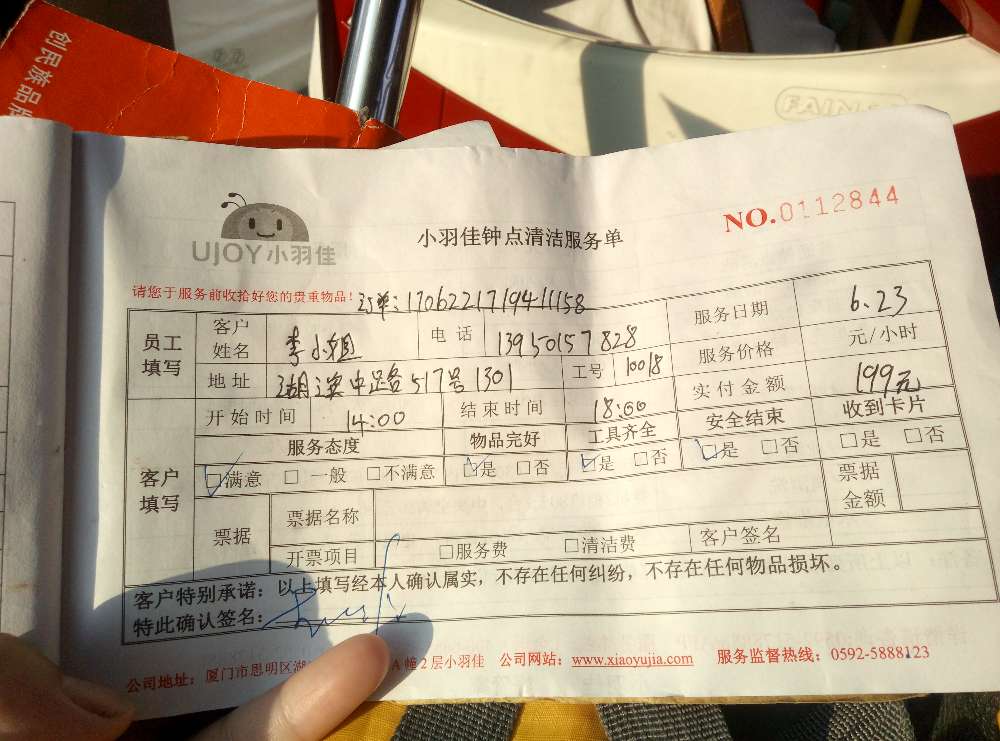 创民族品牌
FAIN
NO.0112844
UJOY小羽佳
小羽佳钟点清洁服务单
请您于服务前收拾好您的贵重物品! 订单:170622171941158
员工填写 客户姓名 李小姐 电话 13950157828 服务日期 6.23
地址 湖滨中路517号1301 工号 10018 服务价格 元/小时
开始时间 14:00 结束时间 18:00 实付金额 199元
客户填写 服务态度 物品完好 工具齐全 安全结束 收到卡片
☑满意 □一般 □不满意 ☑是 □否 ☑是 □否 ☑是 □否 □是 □否
票据 票据名称 票据金额
开票项目 □服务费 □清洁费 客户签名
客户特别承诺:以上填写经本人确认属实,不存在任何纠纷,不存在任何物品损坏。
特此确认签名:
公司地址:厦门市思明区湖 A幢2层小羽佳 公司网站:www.xiaoyujia.com 服务监督热线:0592-5888123